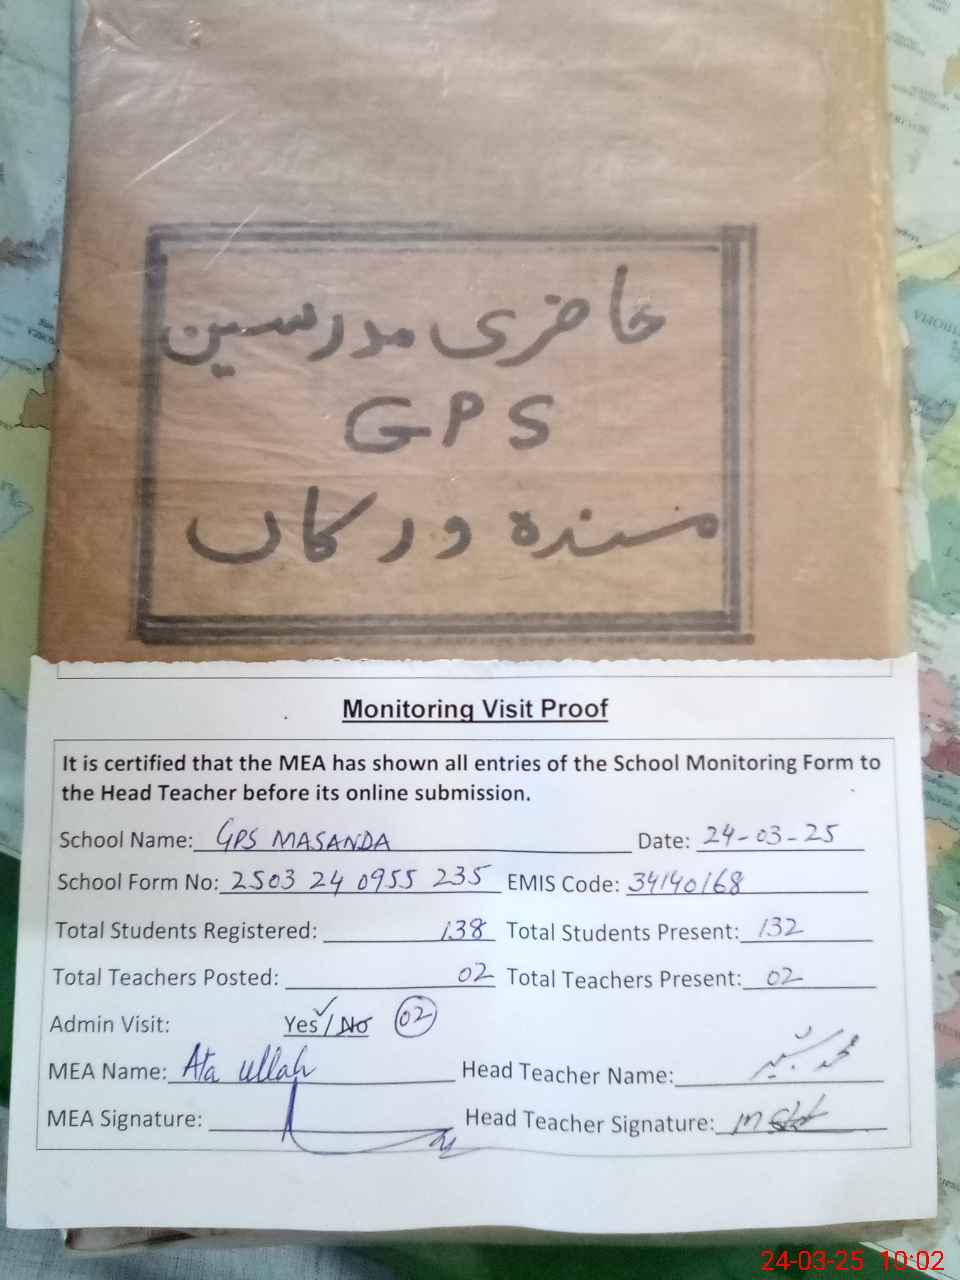 حاضری مدرسین
GPS
مسندہ ورکاں
Monitoring Visit Proof
It is certified that the MEA has shown all entries of the School Monitoring Form to
the Head Teacher before its online submission.
School Name: GPS MASANDA Date: 24-03-25
School Form No: 2503 24 0955 235 EMIS Code: 34140168
Total Students Registered: 138 Total Students Present: 132
Total Teachers Posted: 02 Total Teachers Present: 02
Admin Visit: Yes/No 02
MEA Name: Ata ullah Head Teacher Name: محمد
MEA Signature: Head Teacher Signature:
24-03-25 10:02